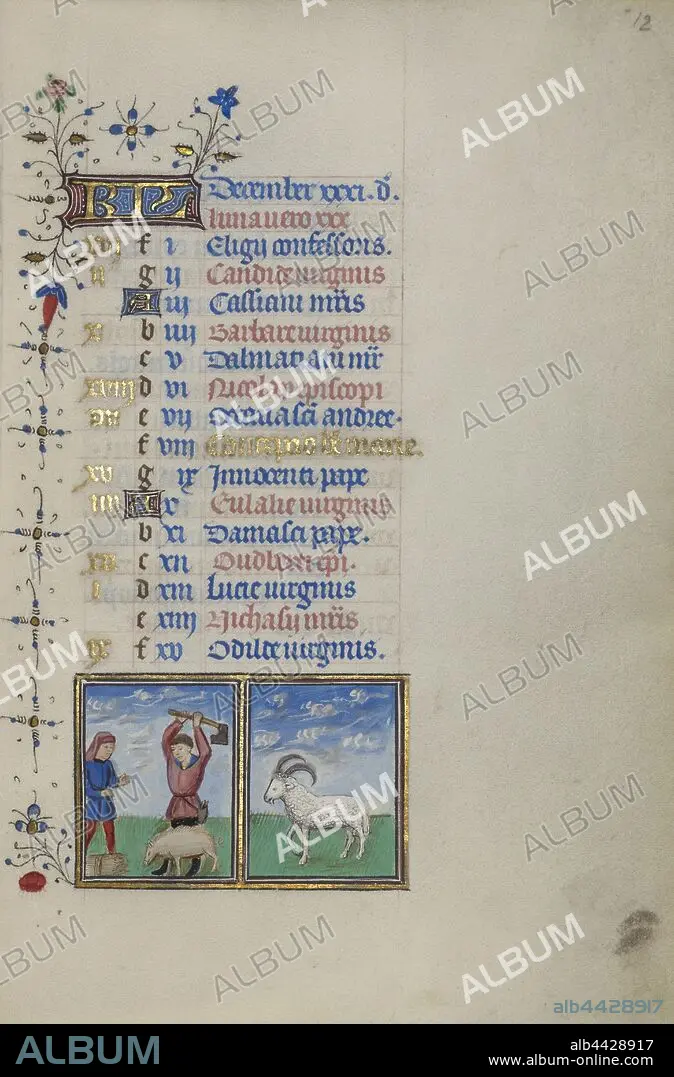 12
KL December xxxi. d.
luna vero xxx
xviij f i Eligij confessoris.
ij g ij Candide virginis
A iij Cassiani mris
x b iiij Barbare virginis
c v Dalmatiani mr
xviij d vi Nicolai episcopi
vij e vij Octava sci andree.
f viij Conceptio be marie.
xv g ix Innocenti pape
iiij A x Eulalie virginis
b xi Damasci pape.
xij c xij epi.
i d xiij Lucie virginis
e xiiij Nichasij mris
ix f xv Odilie virginis.
ALBUM
alb4428917
ALBUM
alb4428917
www.album-online.com